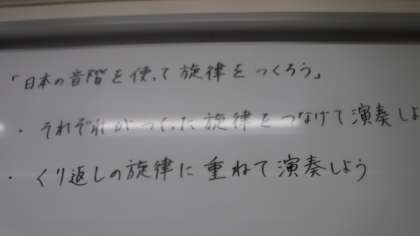 「日本の音階を使って旋律をつくろう」
・それぞれがつくった旋律をつなげて演奏しよ
・くり返しの旋律に重ねて演奏しよう